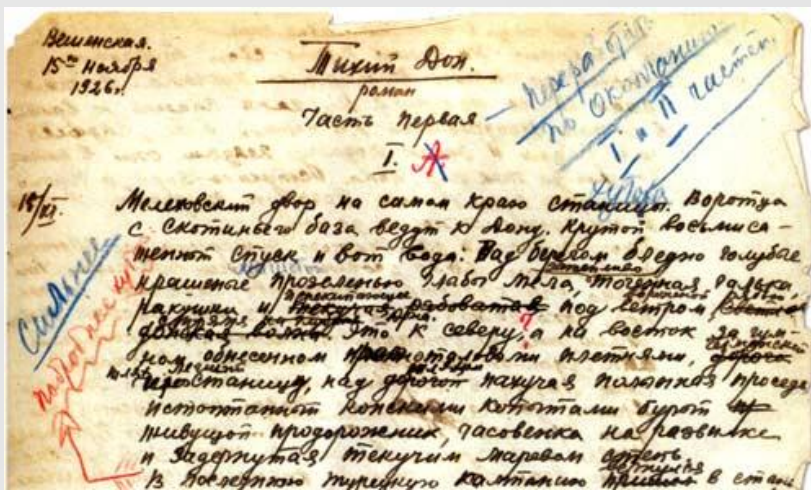 Вешенская.
15го ноября
1926г.
Тихий Дон.
роман
Часть первая
I. А
— переработать
по окончании
I и II частей.
хутора
15/XI.
Мелеховский двор на самом краю станицы. Воротца
с скотиньего база ведут к Дону. Крутой восьмиса-
женный спуск и вот вода: Над берегом бледно голубые
крашеные прозеленью глыбы мела, точеная галька,
ракушки и перекипающие под ветром
донская волна. Это к северу, а на восток за гум-
ном, обнесенном плетнями,
над дорогой пахучая полынная проседь
истоптанный конскими копытами бурый
живущой придорожник, часовенка на развилке
и задернутая текучим маревом степь
В последнюю турецкую кампанию вернулся в стани
Сильнее
подробнее
?